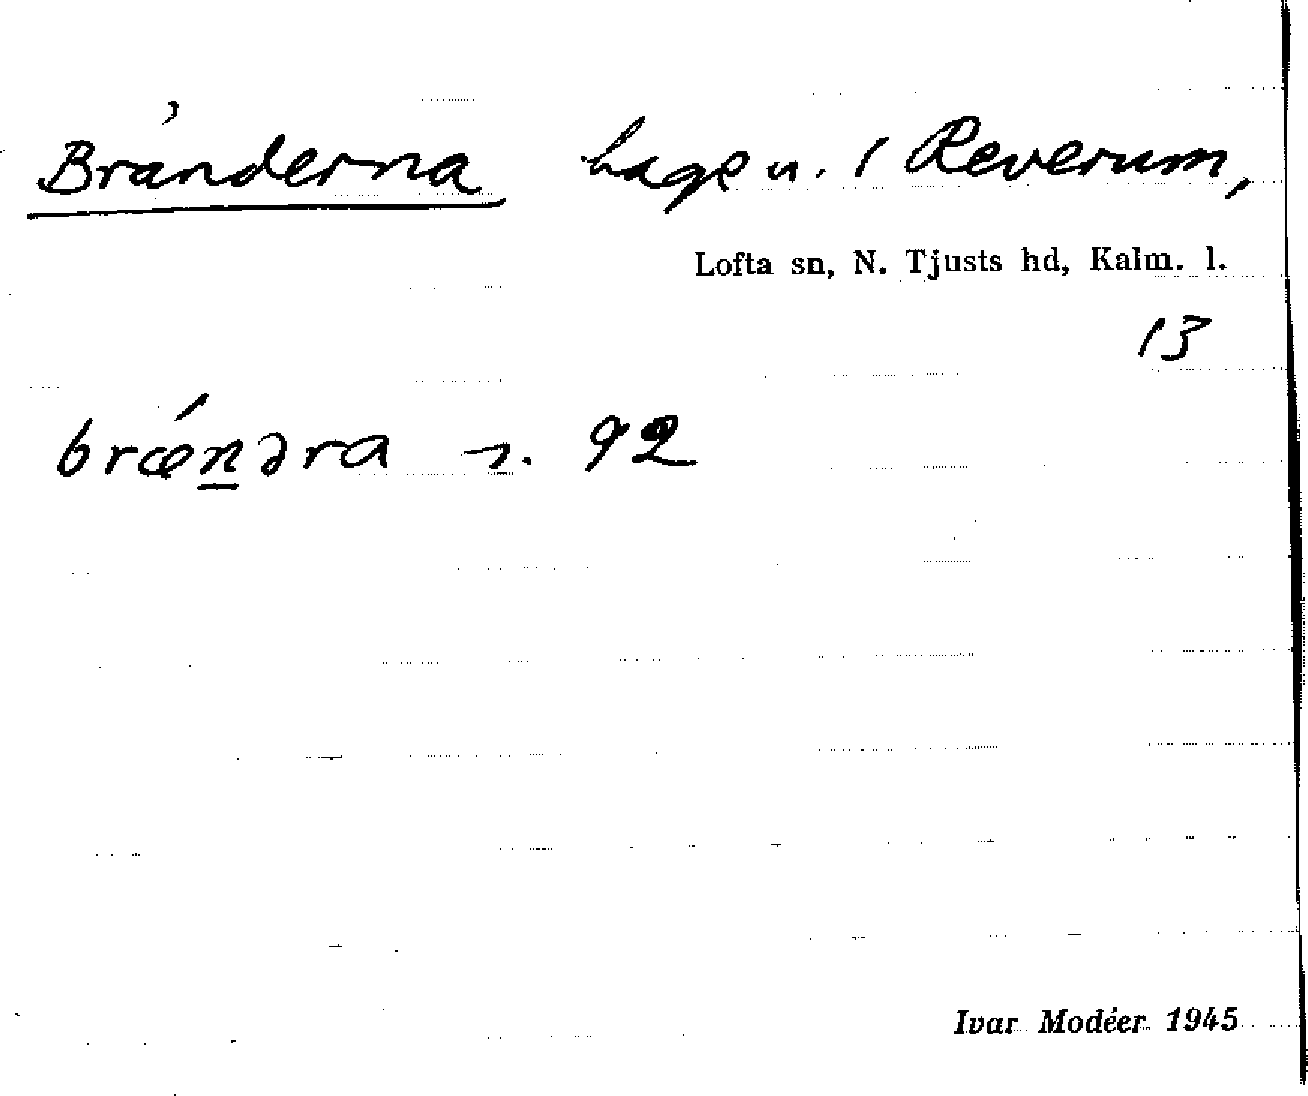 Bränderna hage u. / Reverum,
Lofta sn, N. Tjusts hd, Kalm. l.
13
brǽn̲əra 92
Ivar Modéer 1945